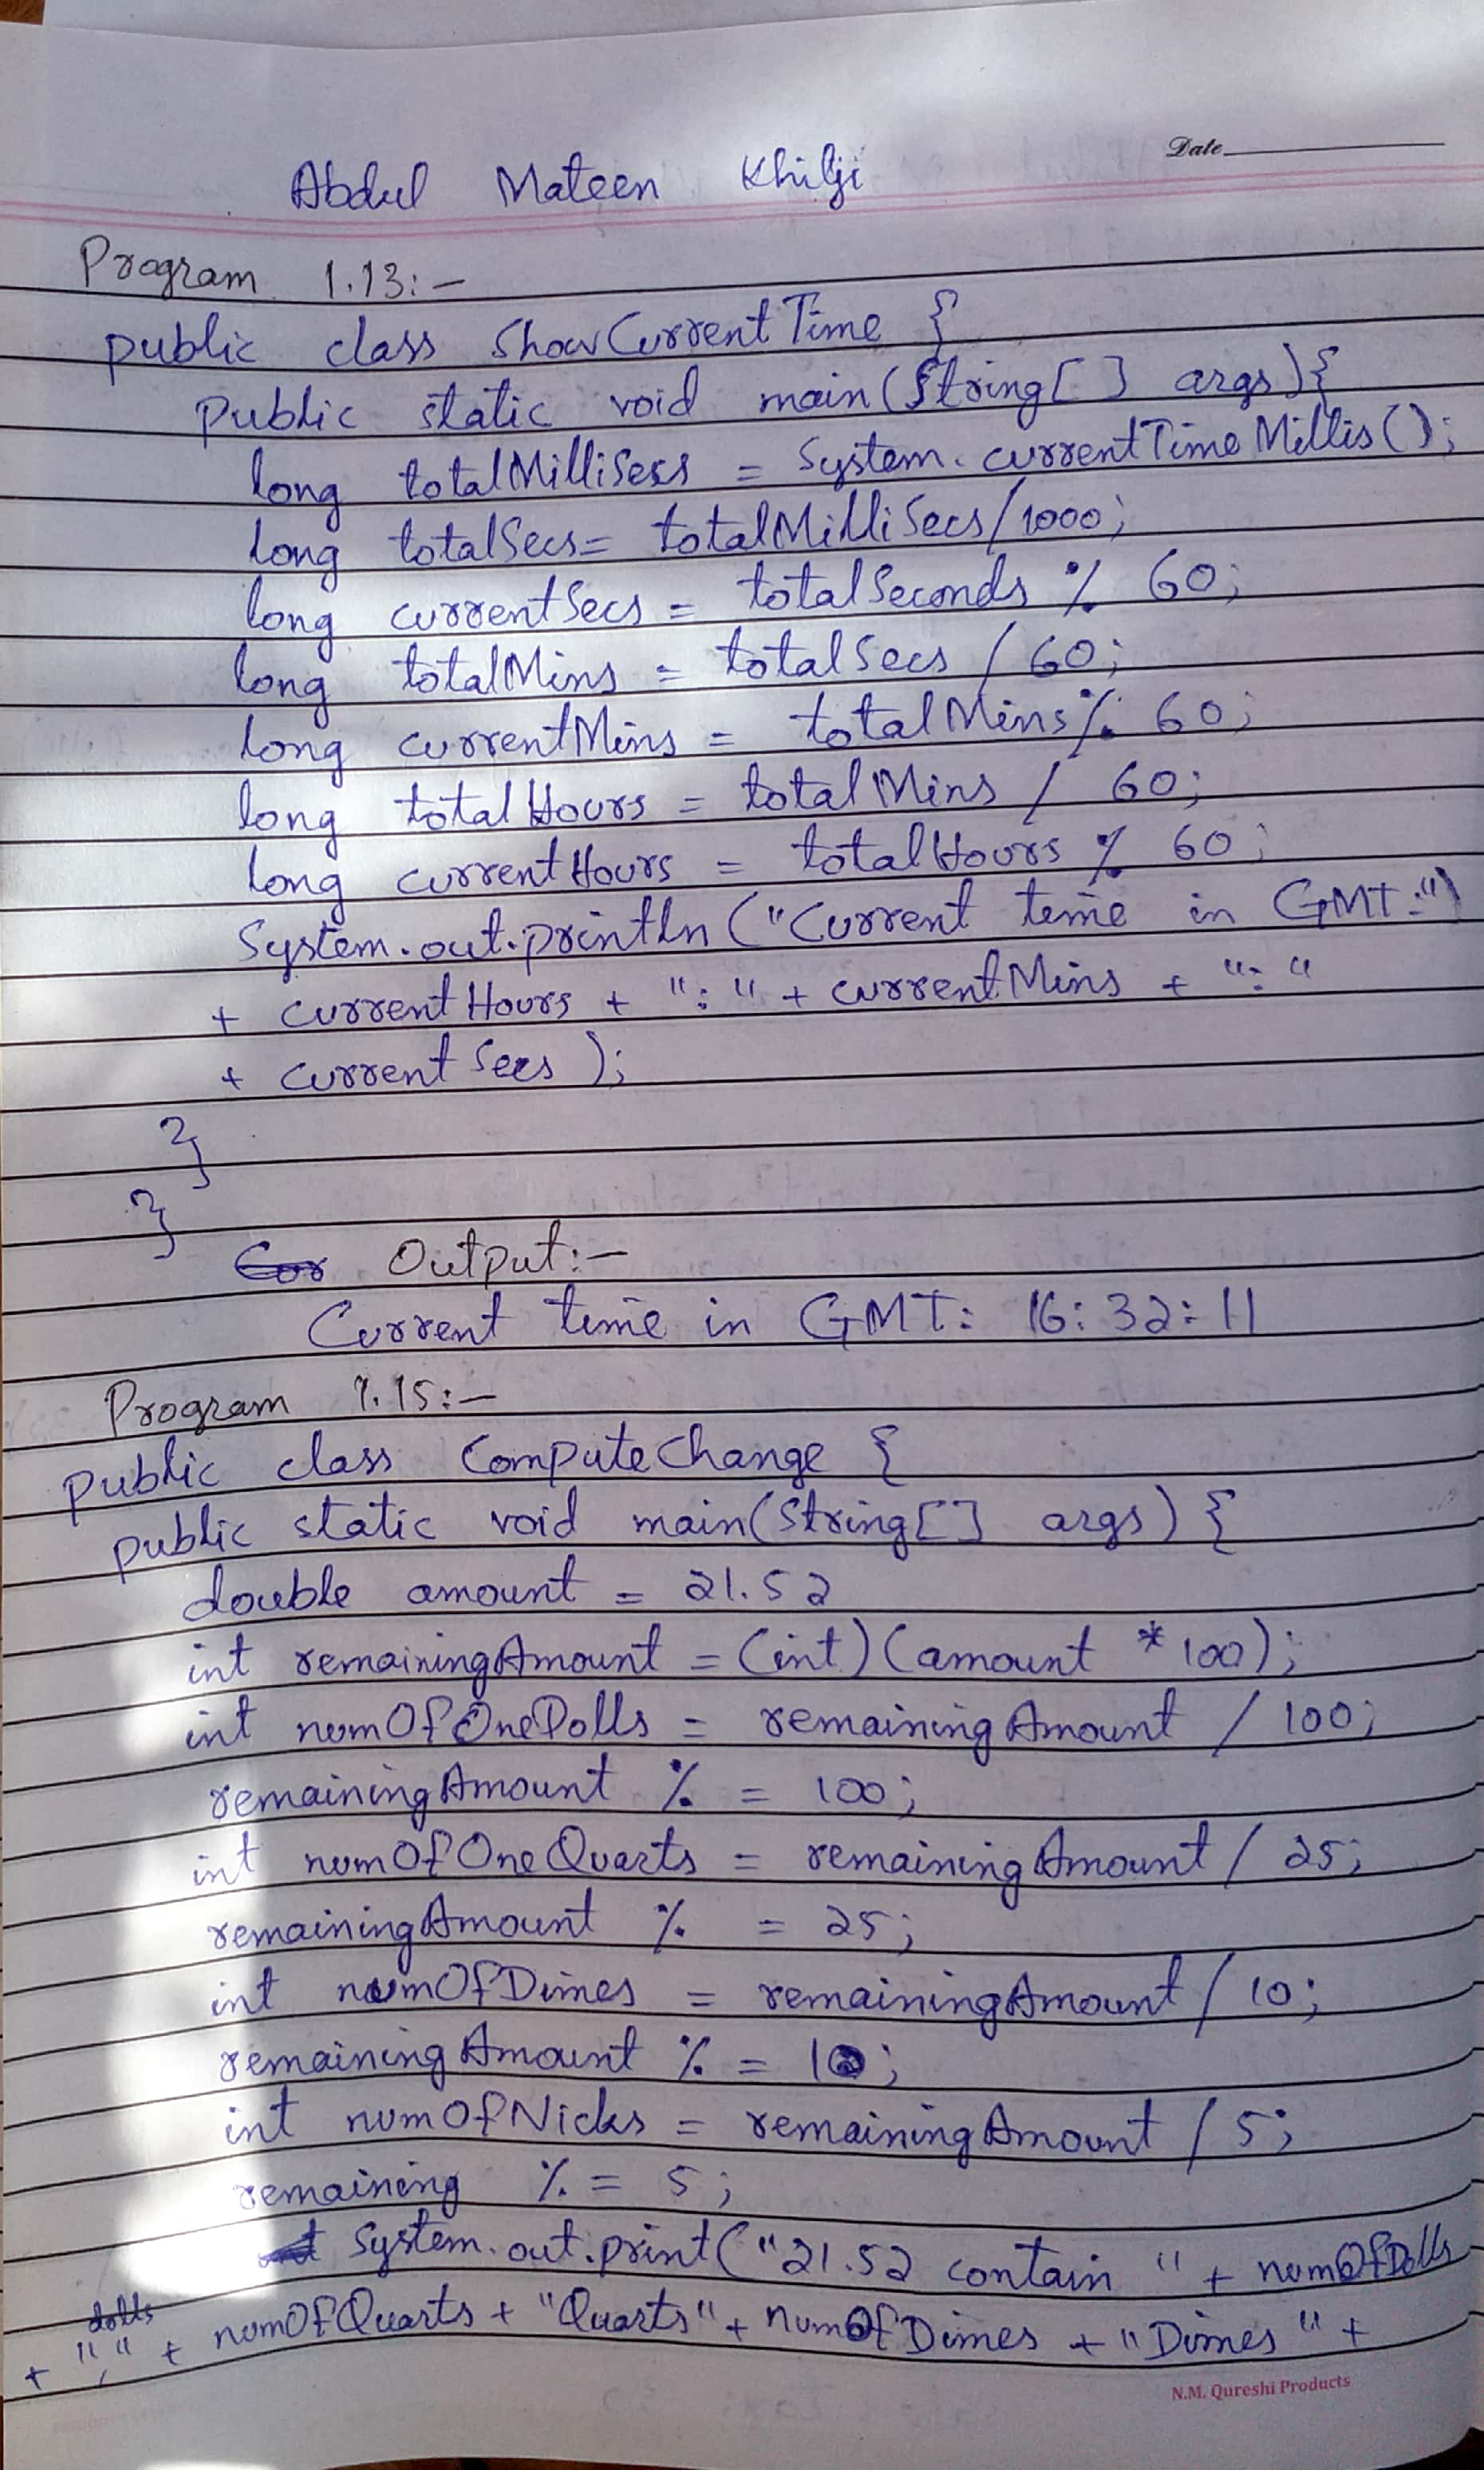 Date
Abdul Mateen Khilji
Program 1.13:-
public class ShowCurrentTime {
public static void main(String[] args){
long totalMilliSecs = System.currentTimeMillis();
long totalSecs= totalMilliSecs/1000;
long currentSecs = totalSeconds % 60;
long totalMins = totalSecs / 60;
long currentMins = totalMins % 60;
long totalHours = totalMins / 60;
long currentHours = totalHours % 60;
System.out.println("Current time in GMT:")
+ currentHours + ":" + currentMins + ":"
+ currentSecs );
}
}
Output:-
Current time in GMT: 16:32:11
Program 1.15:-
public class ComputeChange {
public static void main(String[] args) {
double amount = 21.52
int remainingAmount = (int)(amount * 100);
int numOfOneDolls = remainingAmount / 100;
remainingAmount % = 100;
int numOfOneQuarts = remainingAmount / 25;
remainingAmount % = 25;
int numOfDimes = remainingAmount / 10;
remainingAmount % = 10;
int numOfNicks = remainingAmount / 5;
remaining % = 5;
System.out.print("21.52 contain " + numOfDolls
dolls
+ "," + numOfQuarts + "Quarts" + numOfDimes + "Dimes" +
N.M. Qureshi Products